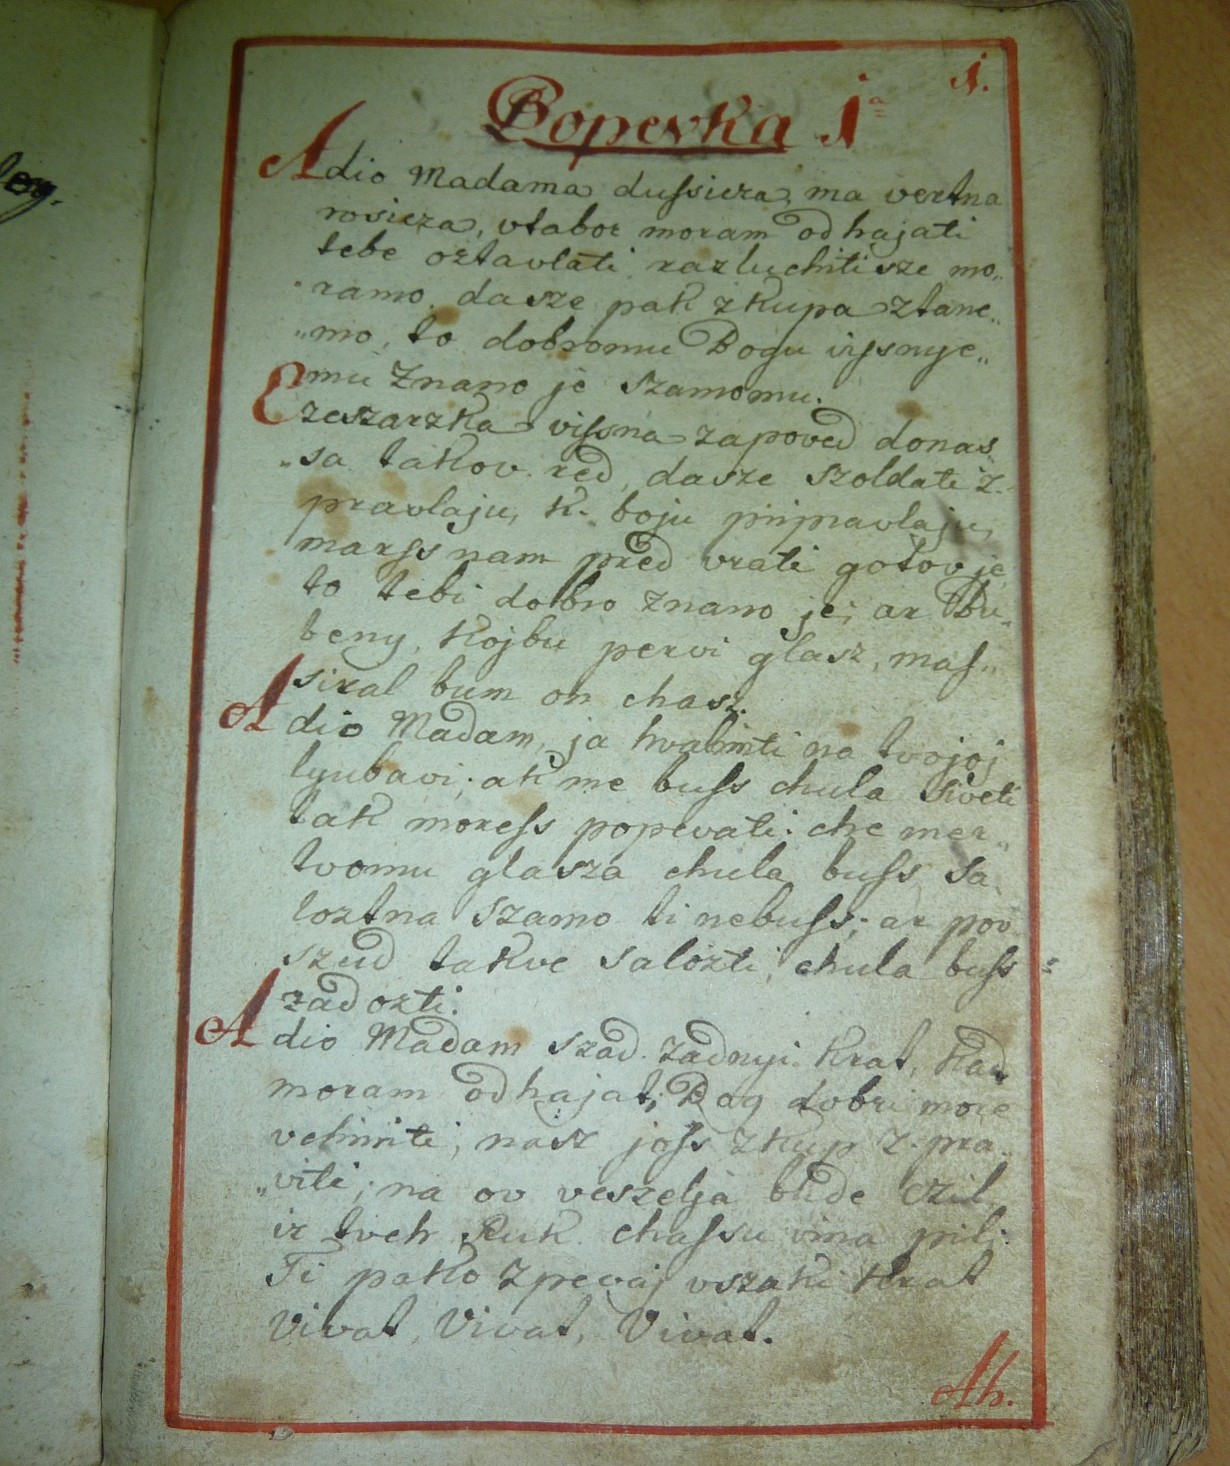 1.
Popevka 1ª
Adio Madama dussicza, ma vertna
rosicza, vtabor moram odhajati
tebe oztavlati razluchitisze mo„
„ramo. dasze pak zkupa ztane„
„mo, to dobromu Bogu vissnye„
mu znano je szamomu.
Czeszarzka vissna zapoved donas„
„sa takov red, dasze szoldati z„
pravlaju, k. boju pripravlaju,
marss nam pred vrati gotov je,
to tebi dobro znano je; ar Bu„
beny, kojbu pervi glasz, mas„
siral bum on chasz.
Adio Madam, ja hvalimti na tvojoj
lyubavi; ak me buss chula siveti
tak moress popevati: che mer„
tvomu glasza chula buss sa„
loztna szamo ti nebuss; ar pov
szud takve salozti, chula buss
zadozti.
Adio Madam szad zadnyi krat, kad
moram odhajat; Bog dobri more
vchiniti, nasz joss zkup z.pra„
„viti; na ov veszelja bude czil,
iz tveh ruk chassu vina pil;
Ti pako zpevaj vszaki krat
Vivat, Vivat, Vivat.
Ah.